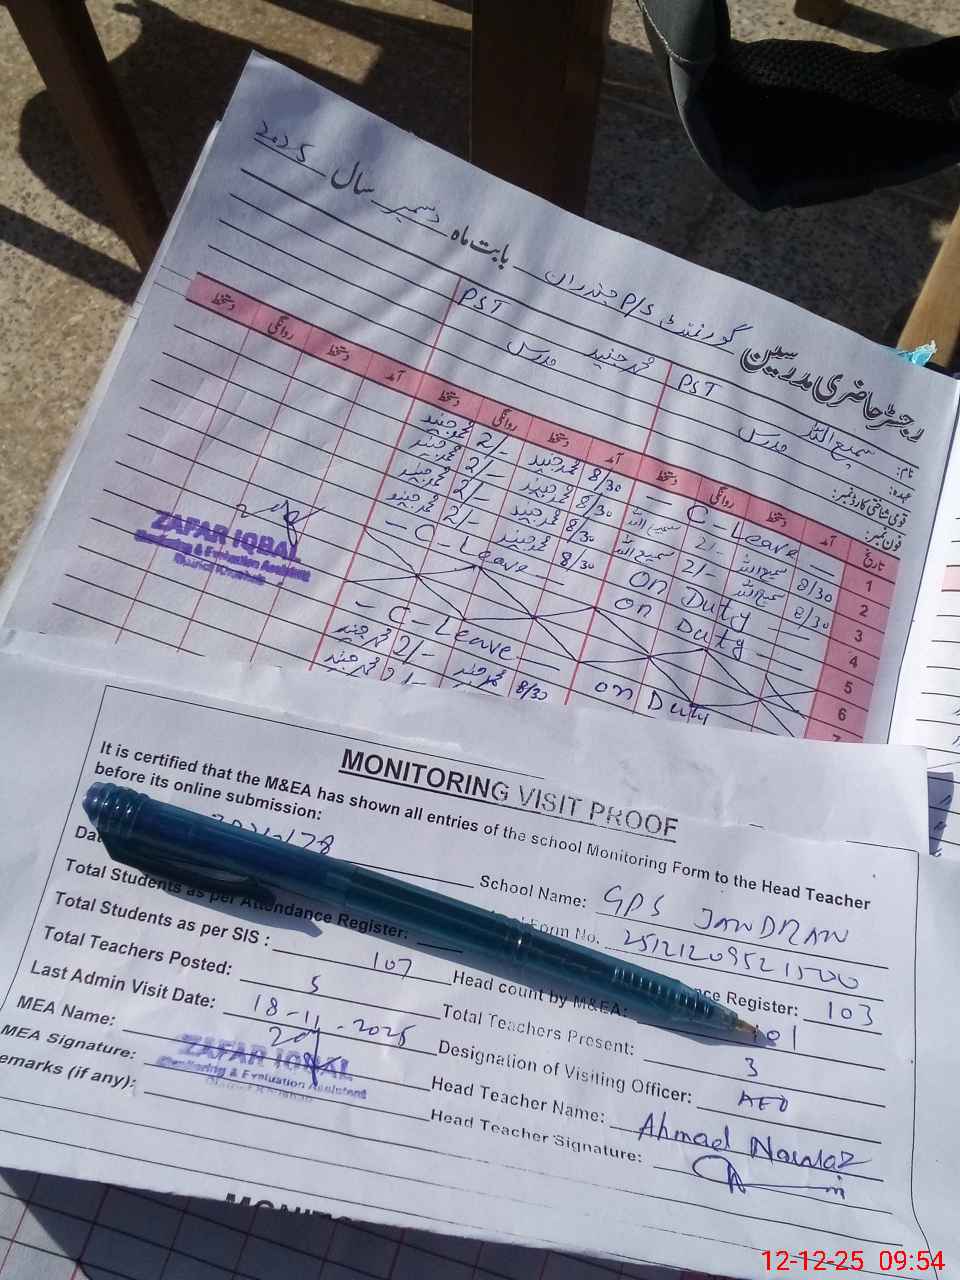 رجسٹر حاضری مدرسین گورنمنٹ P/S جندران بابت ماہ دسمبر سال 2025
نام: سمیع اللہ PST محمد جنید PST
عہدہ: مدرس مدرس
قومی شناختی کارڈ نمبر:
فون نمبر:
تاریخ آمد دستخط روانگی دستخط آمد دستخط روانگی دستخط آمد دستخط روانگی دستخط
1 — C-Leave — 8/30 محمد جنید 2/- محمد جنید
2 8/30 سمیع اللہ 2/- سمیع اللہ 8/30 محمد جنید 2/- محمد جنید
3 8/30 سمیع اللہ 2/- سمیع اللہ 8/30 محمد جنید 2/- محمد جنید
4 On Duty 8/30 محمد جنید 2/- محمد جنید
5 on Duty — C-Leave —
6
7
on Duty — C-Leave —
8/30 محمد جنید 2/- محمد جنید
ZAFAR IQBAL
Monitoring & Evaluation Assistant
District Khushab
MONITORING VISIT PROOF
It is certified that the M&EA has shown all entries of the school Monitoring Form to the Head Teacher
before its online submission:
School Name: GPS JANDRAN
Form No. 25121209521500
Total Students as per Attendance Register:
ce Register: 103
Total Students as per SIS : 107 Head count by M&EA: 101
Total Teachers Posted: 5 Total Teachers Present: 3
Last Admin Visit Date: 18-11-2025 Designation of Visiting Officer: AEO
MEA Name: Head Teacher Name: Ahmad Nawaz
MEA Signature: Head Teacher Signature:
ZAFAR IQBAL
Monitoring & Evaluation Assistant
District Khushab
emarks (if any):
12-12-25 09:54